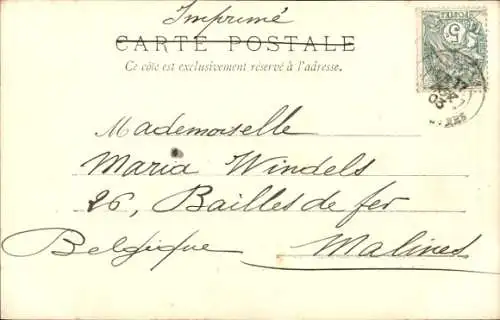 Imprimé
CARTE POSTALE
Ce côté est exclusivement réservé à l'adresse.
5
17
03
Mademoiselle
Maria Windels
26, Bailles de fer
Belgique Malines